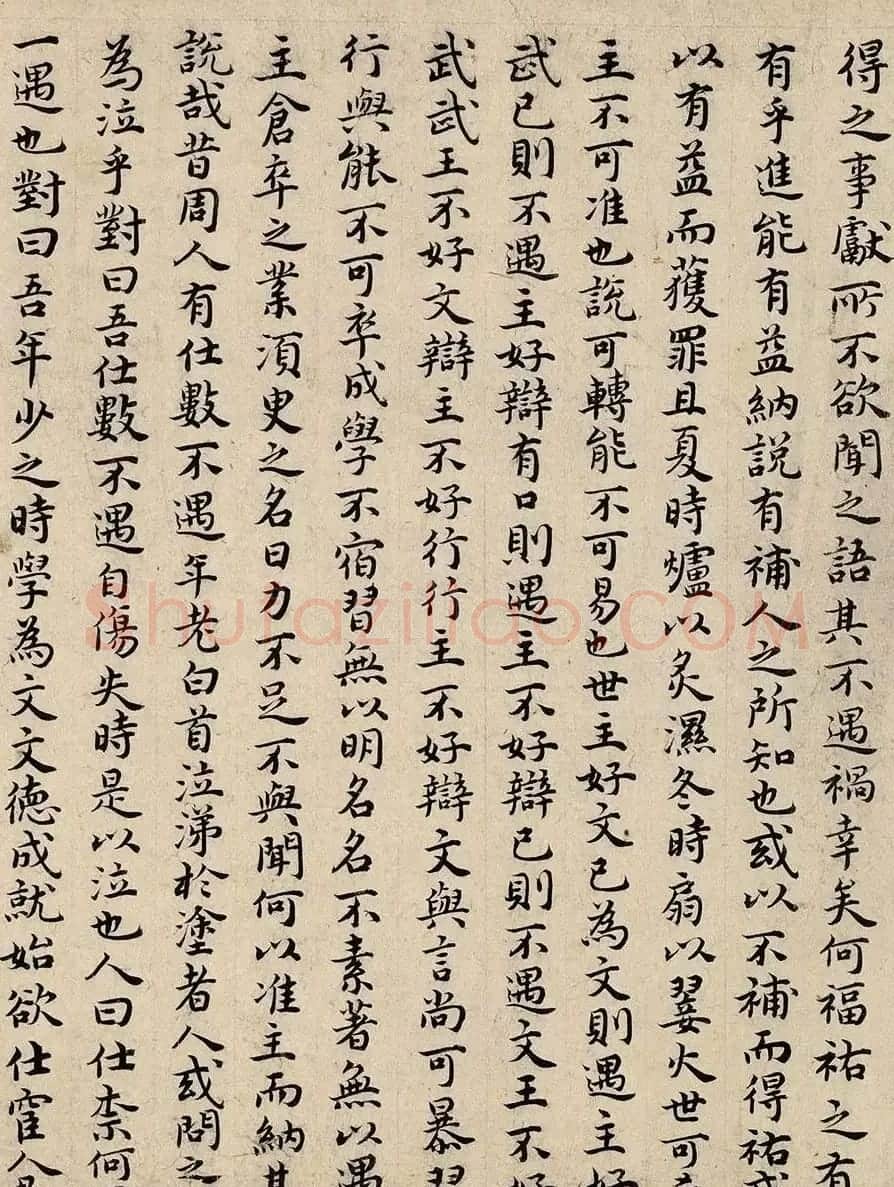 得之事獻所不欲聞之語其不遇禍幸矣何福祐之有
有乎進能有益納說有補人之所知也或以不補而得祐或
以有益而獲罪且夏時爐以炙濕冬時扇以翣火世可
主不可准也說可轉能不可易也世主好文已為文則遇主好
武已則不遇主好辯有口則遇主不好辯已則不遇文王不好
武武王不好文辯主不好行行主不好辯文與言尚可暴習
行與能不可卒成學不宿習無以明名名不素著無以遇
主倉卒之業須臾之名日力不足不與聞何以准主而納其
說哉昔周人有仕數不遇年老白首泣涕於塗者人或問之
為泣乎對曰吾仕數不遇自傷失時是以泣也人曰仕柰何
一遇也對曰吾年少之時學為文文德成就始欲仕宦人
Shufaziliao.COM